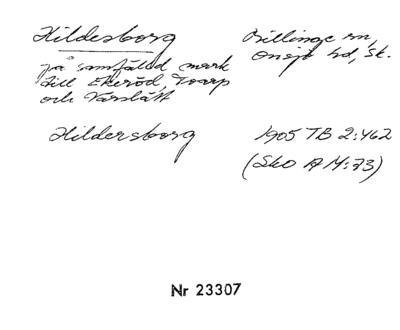 Hildesborg
Billinge sn,
Onsjö hd, Sk.
på samfälld mark
till Ekeröd, Toarp
och Varslätt
Hildersborg
1905 TB 2:462
(Sko A M:73)
Nr 23307